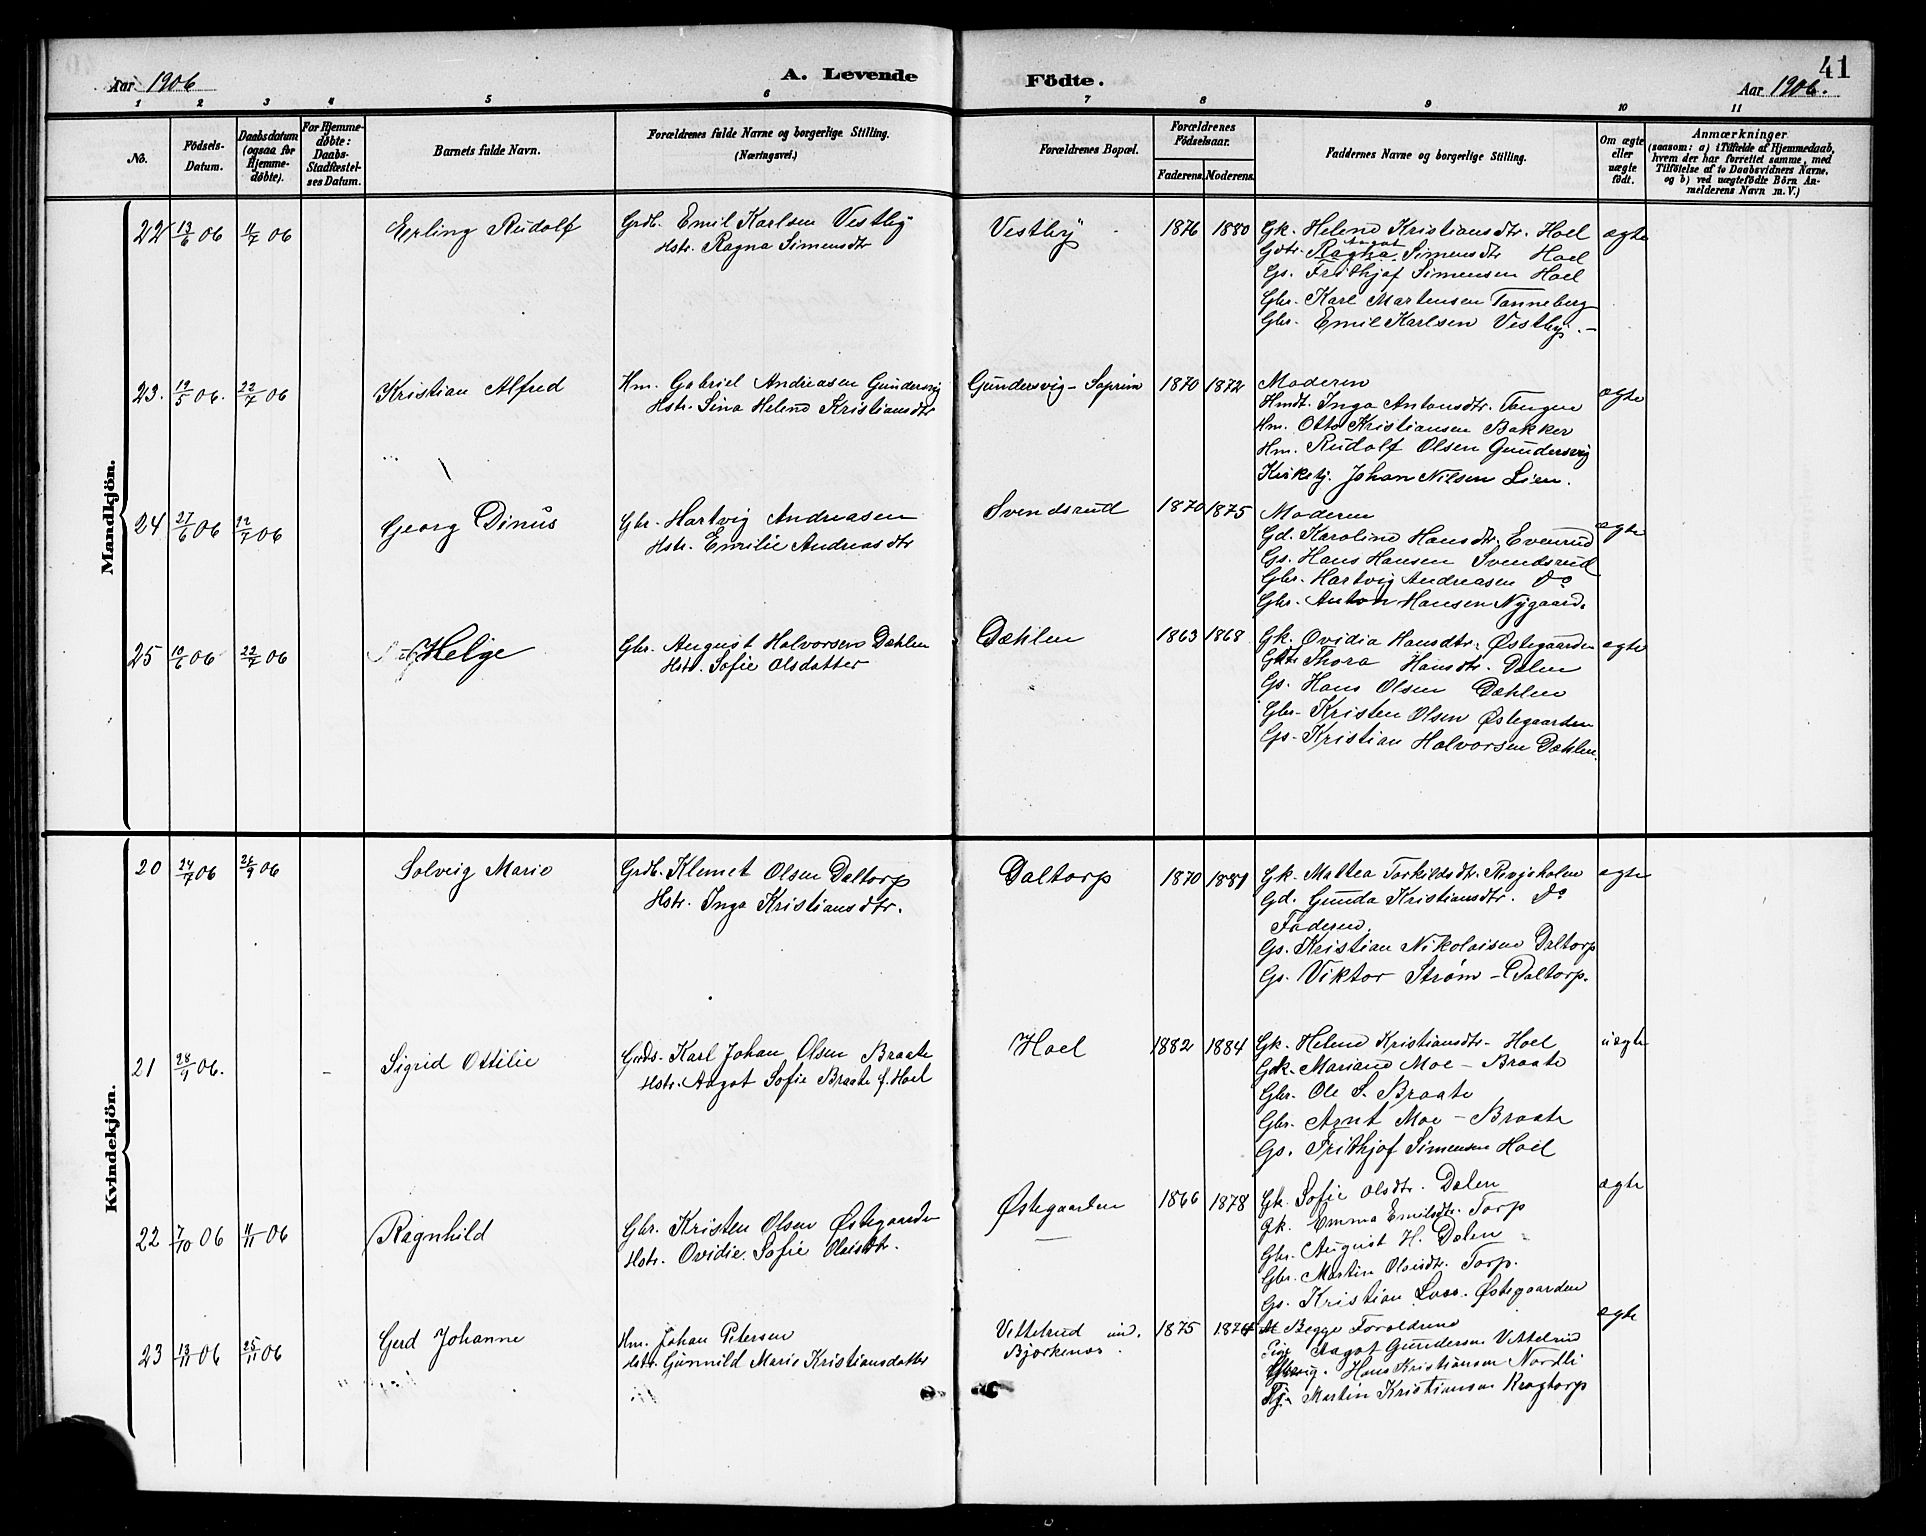 41
Aar 1906
A. Levende
Födte.
Aar 1906.
1 2 3 4 5 6 7 8 9 10 11
No.
Födsels-
Datum.
Daabsdatum
(ogsaa for
Hjemme-
döbte).
For Hjemme-
döbte:
Daabs-
Stadfæstel-
ses Datum.
Barnets fulde Navn.
Forældrenes fulde Navne og borgerlige Stilling.
(Næringsvei.)
Forældrenes Bopæl.
Forældrenes
Födselsaar.
Faderens. Moderens.
Faddernes Navne og borgerlige Stilling.
Om ægte
eller
uægte
födt.
Anmærkninger
(saasom: a) i Tilfælde af Hjemmedaab,
hvem der har forrettet samme, med
Tilföielse af to Daabsvidners Navne,
og b) ved uægtefödte Börn An-
melderens Navn m. V.)
Mandkjön.
22 13/6 06 11/7 06 Erling Rudolf
Grdb. Emil Karlsen Vestby
Hstr. Ragna Simensdtr
Vestby 1876 1880
Gk. Helene Kristiansdtr. Hoel
Aagot
Gdtr. Ragna Simensdtr Hoel
Gs. Frithjof Simensen Hoel
Gbr. Karl Martensen Tanneberg
Gbr. Emil Karlsen Vestby.
ægte
23. 19/5 06. 22/7 06 Kristian Alfred
Hm. Gabriel Andreasen Gundersvig
Hstr. Sina Helene Kristiansdtr
Gundersvig - Saprim 1870 1872
Moderen
Hmdt. Inga Antonsdtr. Tangen
Hm. Otto Kristiansen Bakker
Hm. Rudolf Olsen Gundersvig
Kirketj. Johan Nilsen Lien.
ægte
24 27/6 06 22/7 06 Georg Dinus
Gbr. Hartvig Andreasen
Hstr. Emilie Andreasdtr
Svendsrud 1870 1875
Moderen
Gd. Karoline Hansdtr. Evenrud
Gs. Hans Hansen Svendsrud
Gbr. Hartvig Andreasen Do
Gbr. Anton Hansen Nygaard.
ægte
25 10/6 06 22/7 06 Helge
Gbr. August Halvorsen Dæhlen
Hst. Sofie Olsdatter
Dæhlen 1863 1868
Gk. Ovidia Hansdtr. Østegaarden
Thora Hansdtr. Dalen
Gs. Hans Olsen Dæhlen
Gbr. Kristen Olsen Østegaarden
Gs. Kristian Halvorsen Dæhlen.
ægte
Kvindekjön.
20 24/7 06 26/9 06 Solveig Marie
Grdb. Klemet Olsen Daltorp
Hstr. Inga Kristiansdtr.
Daltorp 1870 1881
Gk. Mathea Torkildsdtr. Rasjøholen
Gd. Gunda Kristiansdtr. Do
Faderen.
Gs. Kristian Nikolaisen Daltorp
Gs. Viktor Strøm - Daltorp.
ægte
21 28/1 06. Sigrid Ottilie
Grds. Karl Johan Olsen Braate
Hstr. Aagot Sofie Braate f. Hoel
Hoel 1882 1884
Gk. Helene Kristiansdtr. Hoel
Gdk. Mariane Moe - Braate
Gbr. Ole S. Braate
Gbr. Arnt Moe - Braate
Gs. Frithjof Simensen Hoel
uægte
22 7/10 06 11/11 06 Ragnhild
Gbr. Kristen Olsen Østegaarden
Hstr. Ovidie Sofie Olsdtr.
Østegaarden 1866 1878
Gk. Sofie Olsdtr. Dalen
Gk. Emma Emilsdtr. Torp
Gbr. August H. Dalen
Gbr. Martin Olsen Torp.
Gs. Kristian Østegaarden
ægte
23 13/11 06 25/11 06 Gerd Johanne
Hm. Johan Petersen
Hstr. Gunnild Marie Kristiansdatter
Vittelrud ind.
Bjørkenæs. 1875 1874
Begge Foreldrene
Pige Aagot Gundersen Vittelrud
Hans Kristiansen Nordli
Tj. Martin Kristiansen Kragtorp
ægte